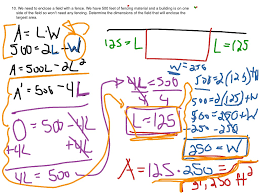 10. We need to enclose a field with a fence. We have 500 feet of fencing material and a building is on one
side of the field so won't need any fencing. Determine the dimensions of the field that will enclose the
largest area.
A = L·W
500 = 2L + W
A = 500L - 2L²
A' = 500 - 4L
0 = 500 - 4L
+4L +4L
4L = 500
4L = 500
4 4
L = 125
125 = L
L = 125
W = 250
500 = 2(125) + W
500 = 250 + W
-250 -250
250 = W
A = 125·250 =
31,250 ft²